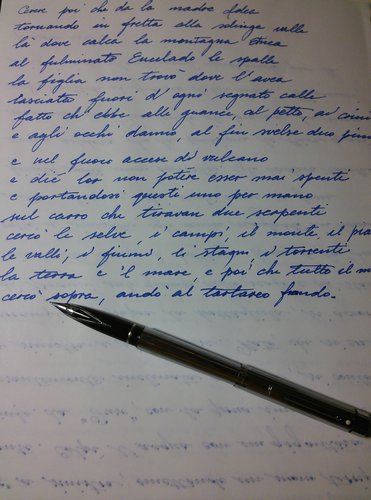 Cerere poi che da la madre Idea
tornando in fretta alla solinga valle
là dove calca la montagna Etnea
al fulminato Encelado le spalle
la figlia non trovò dove l'avea
lasciata fuori d'ogni segnato calle
fatto ch'ebbe alle guance, al petto, ai crini
e agli occhi danno, al fin svelse duo pin
e nel fuoco accese di vulcano
e diè lor non potere esser mai spenti
e portandosi questi uno per mano
sul carro che tiravan due serpenti
cercò le selve, i campi, il monte il pia
le valli, i fiumi, li stagni, i torrenti
la terra e 'l mare, e poi che tutto il m
cercò sopra, andò al tartareo fondo.